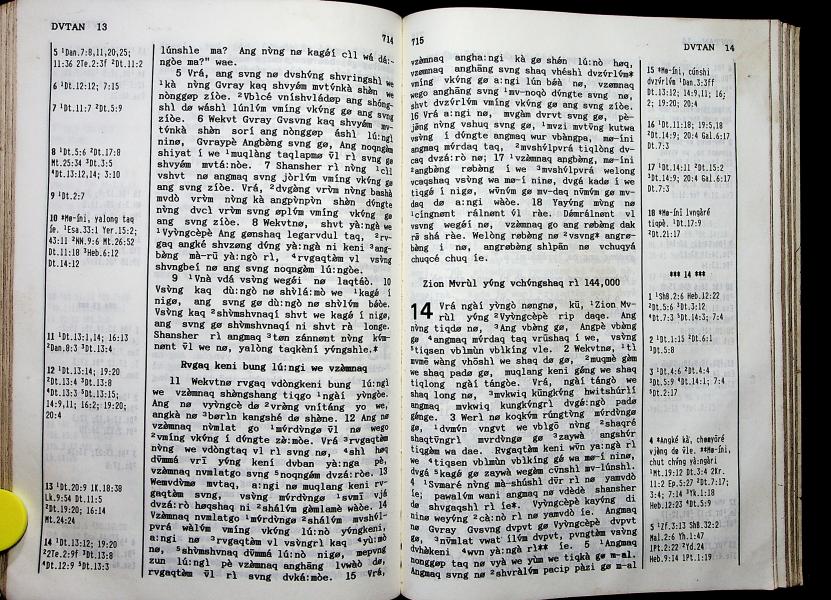 DVTAN 13
714
5 ¹Dan.7:8,11,20,25;
11:36 2Te.2:3f ²Dt.11:2
6 ¹Dt.12:12; 7:15
7 ¹Dt.11:7 ²Dt.5:9
8 ¹Dt.5:6 ²Dt.17:8
Mt.25:34 ³Dt.3:5
⁴Dt.13:12,14; 3:10
9 ¹Dt.2:7
10 *Mø-íni, yalong taq
íe. ¹Esa.33:1 Yer.15:2;
43:11 ²NN.9:6 Mt.26:52
Dt.11:18 ³Heb.6:12
Dt.14:12
11 ¹Dt.13:1,14; 16:13
²Dan.8:3 ³Dt.13:4
12 ¹Dt.13:14; 19:20
²Dt.13:4 ³Dt.13:8
⁴Dt.13:3 ⁵Dt.13:15;
14:9,11; 16:2; 19:20;
20:4
13 ¹Dt.20:9 1K.18:38
Lk.9:54 Dt.11:5
²Dt.19:20; 16:14
Mt.24:24
14 ¹Dt.13:12; 19:20
²2Te.2:9f ³Dt.13:8
⁴Dt.12:9 ⁵Dt.13:3
lúnshle ma? Ang nv̀ng nø kagéí cll wá dá:-
ngòe ma?" wae.
5 Vrá, ang svng nø dvshv́ng shvringshl we
¹kà nv̀ng Gvray kaq shvyám mvtv́nkà shèn we
nònggøp zíòe. ²Vblcé vníshvládøp ang shóng-
shl dø wáshl lúnlv́m vmíng vkv́ng gø ang svng
zíòe. 6 Wekvt Gvray Gvsvng kaq shvyám mv-
tv́nkà shèn sorí ang nònggøp áshl lú:ngl
ninø, Gvraypè Angbèng svng gø, Ang noqngèm
shiyat í we ¹muqlàng taqlapmø v̄l rl svng gø
shvyám mvtá:nòe. 7 Shansher rl nv̀ng ¹cll
vshvt nø angmaq svng jòrlv́m vmíng vkv́ng gø
ang svng zíòe. Vrá, ²dvgèng vrv̀m nv̀ng bashà
mvdò vrv̀m nv̀ng kà angpv̀npv̀n shèn dv́ngte
nv̀ng dvcl vrv̀m svng øplv́m vmíng vkv́ng gø
ang svng zíòe. 8 Wekvtnø, shvt yà:ngà we
¹Vyv̀ngcèpè Ang gønshaq legarvdul taq, ²rv-
gaq angké shvzøng dv́ng yà:ngà ni keni ³ang-
bèng mà-rū yà:ngò rl, ⁴rvgaqtàèm vl vsv̀ng
shvngbeí nø ang svng noqngèm lú:ngòe.
9 ¹Vnà vdá vsv̀ng wegéí nø laqtáò. 10
Vsv̀ng kaq dù:ngò nø shv̀lá:mò we ¹kagé í
nigø, ang svng gø dù:ngò nø shv̀lv́m báòe.
Vsv̀ng kaq ²shv̀mshvnqaí shvt we kagé í nigø,
ang svng gø shv̀mshvnqaí ni shvt rà longe.
Shansher rl angmaq ³tøn zánnønt nv̀ng kv́m-
nønt v̄l we nø, yalòng taqkèní yv́ngshle.*
Rvgaq keni bung lú:ngi we vzèmnaq
11 Wekvtnø rvgaq vdòngkeni bung lú:ngl
we vzèmnaq shèngshang tiqgø ¹ngàí yv̀ngòe.
Ang nø vyv̀ngcè dø ²vrèng vnítáng yo we,
angkà nø ³børln kangshé dø shène. 12 Ang nø
vzèmnaq nv́mlat go ¹mv́rdv̀ngø v̄l nø wego
²vmíng vkv́ng í dv́ngte zè:mòe. Vrá ³rvgaqtèm
nv̀ng we vdòngtaq vl rl svng nø, ⁴shl høq
dv̄mmá vrī yv́ng keni dvban yà:nga pè,
vzèmnaq nvmlatgo svng ⁵noqngèm dvzá:ròe. 13
Wemvdv̀mø mvtaq, a:ngi nø muqlang keni rv-
gaqtèm svng, vsv̀ng mv́rdv̀ngø ¹svmī vjá
dvzá:rò høqshaq ni ²shálv́m gàmlamè wàòe. 14
Vzèmnaq nvmlatgo ¹mv́rdv̀ngø ²shálv́m mvshv́l-
pvrá wàlv́m vmíng vkv́ng lú:nò yv́ngkeni,
a:ngi nø ³rvgaqtèm vl vsv̀ngrl kaq ⁴yù:mò
nø, ⁵shv̀mshvnaq dv̄mmá lú:nò nigø, mepvng
zun lú:ngl pè vzèmnaq anghāng lvwàò dø,
rvgaqtèm v̄l rl svng dvká:mòe. 15 Vrá,
715
DVTAN 14
vzèmnaq angha:ngi kà gø shén lú:nò høq,
vzèmnaq anghāng svng shaq vhéshl dvzv́rlv́m*
vmíng vkv́ng gø a:ngi kà béà nø, vzèmnaq
wego anghāng svng ¹mv-noqò dv́ngte svng nø,
shvt dvzv́rlv́m vmíng vkv́ng gø ang svng zíòe.
16 Vrá a:ngi nø, mvgàm dvrvt svng gø, pè-
jēng nv̀ng vshuq svng gø, ¹mvzi mvtv̀ng kutwa
vsv̀ng í dv́ngte angmaq wur vbàngpø, mø-íni
angmaq mv́rdaq taq, ²mvshv́lpvrá tiqlòng dv-
caq dvzá:rò nø; 17 ¹vzèmnaq angbèng, mø-íni
²angbèng røbèng í we ³mvshv́lpvrá welong
vcaqshaq vsv̀ng wa mø-í ninø, dvgá kadø í we
tiqgø í nigø, wv̄nv́m gø mv-daq wv̄nv́m gø mv-
daq dø a:ngi wàòe. 18 Yayv́ng mv̀ng nø
¹cíngnønt rálnønt v̄l ràe. Dèmrálnønt vl
vsv̀ng wegéí nø, vzèmnaq go ang røbèng dak
rø̄ shá ràe. Welòng røbèng nø ²vsv̀ng* angrø-
bèng í nø, angrøbèng shlpān nø vchuqyá
chuqcé chuq íe.
Zion Mvrùl yv́ng vchv́ngshaq rl 144,000
14 Vrá ngàí yv̀ngò nøngnø, kū, ¹Zion Mv-
rùl yv́ng ²Vyv̀ngcèpè rip daqe. Ang
nv̀ng tiqdø nø, ³Ang vbèng gø, Angpè vbèng
gø ⁴angmaq mv́rdaq taq vrūshaq í we, vsv̀ng
⁵tiqsen vblmùn vblking vle. 2 Wekvtnø, ¹tl
mvmē wàng vhōshl we shaq dø gø, ²muqmè gàm
we shaq padø gø, muqlang keni géng we shaq
tiqlong ngàí tángòe. Vrá, ngàí tángò we
shaq long nø, ³mvkwiq kūngkv́ng hwitshúrlí
angmaq mvkwiq kungkv́ngrl dvgá:ngò padø
génge. 3 Werl nø koqkv́m rúngtv̀ng mv́rdv̀ngø
gø, ¹dvmv́n vngvt we vblgō nv̀ng ²shaqré
shaqtv̄ngrl mvrdv̀ngø gø ³zaywà angshv́r
tiqgàm wa dae. Rvgaqtèm keni wv̄n ya:ngà rl
we ⁴tiqsen vblmùn vblking gé wa mø-í ninø,
dvgá ⁵kagé gø zaywà wegàm cv̄nshl mv-lúnshl.
4 ¹Svmaré nv̀ng mà-shúshl dv̄r rl nø yamvdò
íe; pawalv́m wani angmaq nø vdèdè shansher
dø shvgaqshl rl íe*. Vyv̀ngcèpè kayv́ng dl
ninø weyv́ng ²cà:nò rl nø yamvdò íe. Angmaq
nø Gvray Gvsvng dvpvt gø Vyv̀ngcèpè dvpvt
gø, ³nv̄mlat vwat ílv́m dvpvt, pvngtèm vsv̀ng
dvhèkeni ⁴wvn yà:ngà rl** íe. 5 ¹Angmaq
nònggøp taq nø vyà we yùm we tiqkà gø m-al.
Angmaq svng nø ²shvràlv́m pacip pàzi gø m-al.
15 *Mø-íni, cúnshi
dvzv́rlv́m ¹Dan.3:3ff
Dt.13:12; 14:9,11; 16;
2; 19:20; 20:4
16 ¹Dt.11:18; 19:5,18
²Dt.14:9; 20:4 Gal.6:17
Dt.7:3
17 ¹Dt.14:11 ²Dt.15:2
³Dt.14:9; 20:4 Gal.6:17
Dt.7:3
18 *Mø-íni lvngàré
tiqpè. ¹Dt.17:9
²Dt.21:17
*** 14 ***
1 ¹Sh8.2:6 Heb.12:22
²Dt.5:6 ³Dt.3:12
⁴Dt.7:3 ⁵Dt.14:3; 7:4
2 ¹Dt.1:15 ²Dt.6:1
³Dt.5:8
3 ¹Dt.4:6 ²Dt.4:4
³Dt.5:9 ⁴Dt.14:1; 7:4
⁵Dt.2:17
4 *Angké kà, chømyōré
vjàng dø v̄le. **Mø-íni,
chut chv́ng yà:ngàrì
¹Mt.19:12 Dt.3:4 2Kr.
11:2 Ep.5:27 ²Dt.7:17;
3:4; 7:14 ³Yk.1:18
Heb.12:23 ⁴Dt.5:9
5 ¹Zf.3:13 Sh8.32:2
Mal.2:6 Yh.1:47
1Pt.2:22 ²Yd.24
Heb.9:14 1Pt.1:19